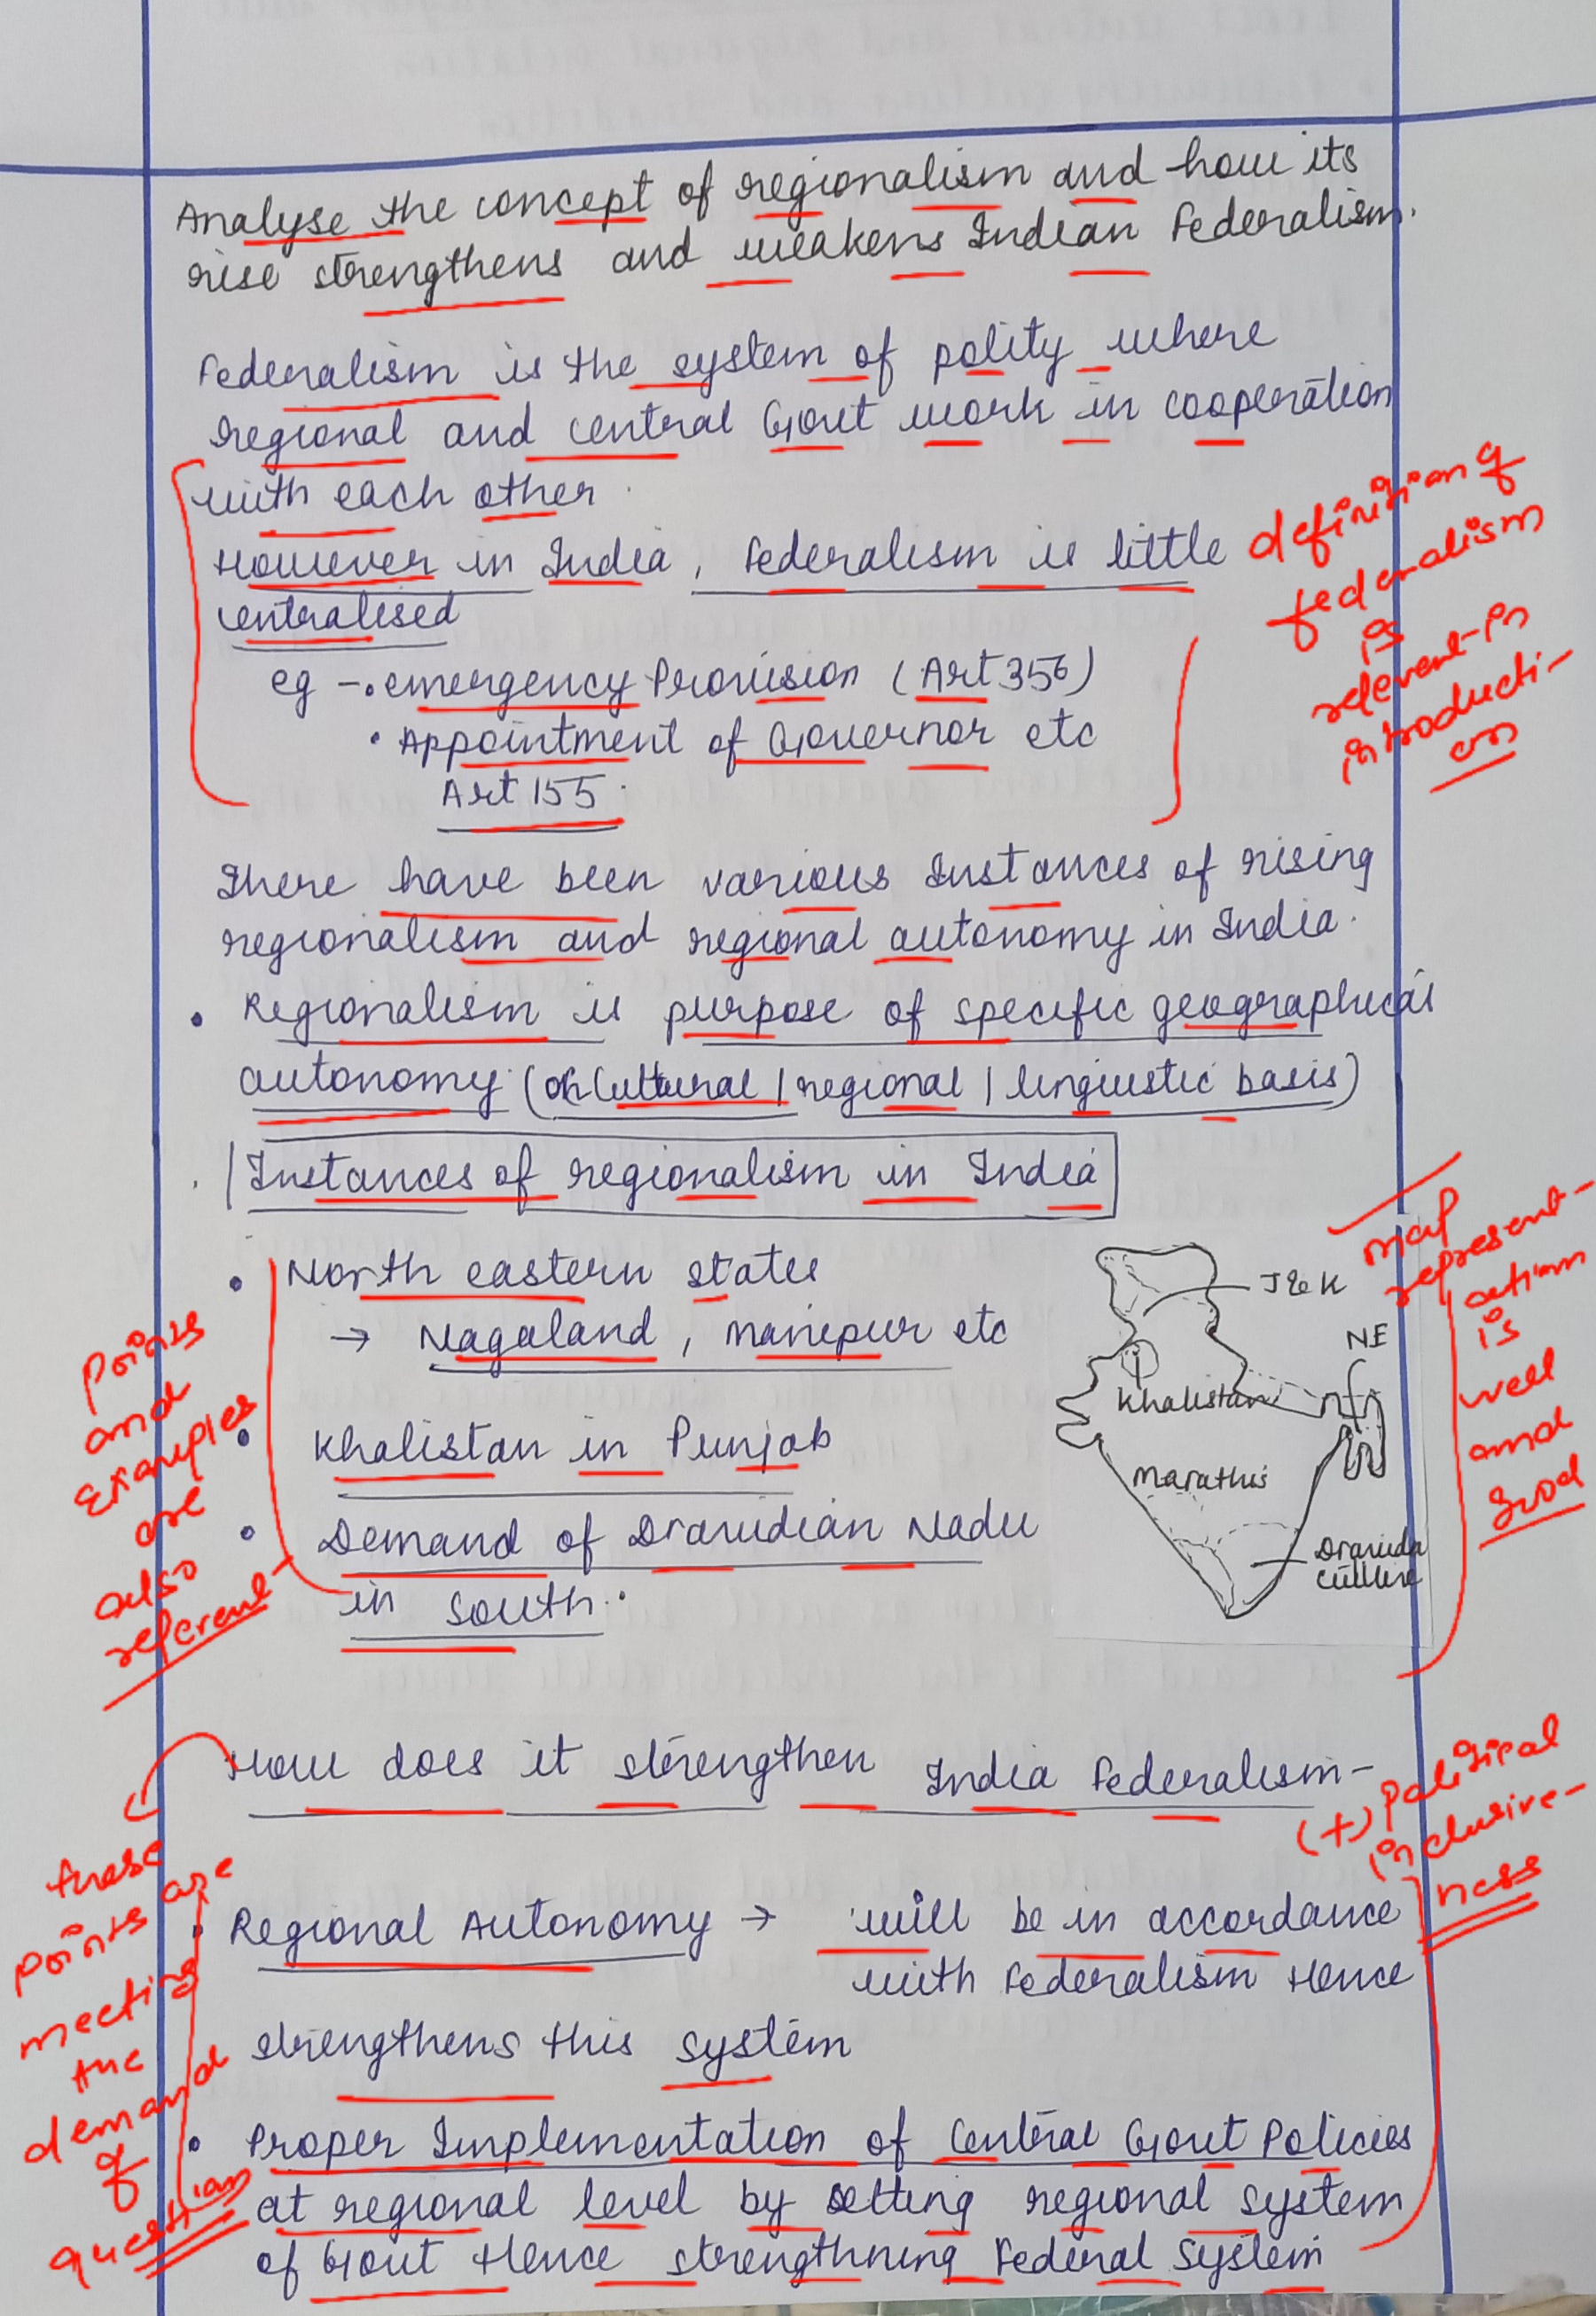 Analyse the concept of regionalism and how its
rise strengthens and weakens Indian Federalism.
Federalism is the system of polity where
regional and central Govt work in cooperation
with each other.
However in India, Federalism is little
centralised
eg -• emergency Provision (Art 356)
• Appointment of Governor etc
Art 155.
definition of
federalism
is
relevent in
introducti-
on
There have been various Instances of rising
regionalism and regional autonomy in India.
• Regionalism is purpose of specific geographical
autonomy (on Cultural | regional | linguistic basis)
Instances of regionalism in India
• North eastern states
→ Nagaland, Manipur etc
• Khalistan in Punjab
• Demand of Dravidian Nadu
in south.
points
and
examples
are
also
referent
J & K
NE
Khalistan
Marathis
Dravida
culture
map
represent-
ation
is
well
and
good
How does it strengthen India Federalism-
(+) Political
inclusive-
ness
these
points are
meeting
the
demand
of
question
• Regional Autonomy → will be in accordance
with Federalism Hence
strengthens this system
• Proper Implementation of Central Govt Policies
at regional level by setting regional system
of Govt Hence strengthning Federal System